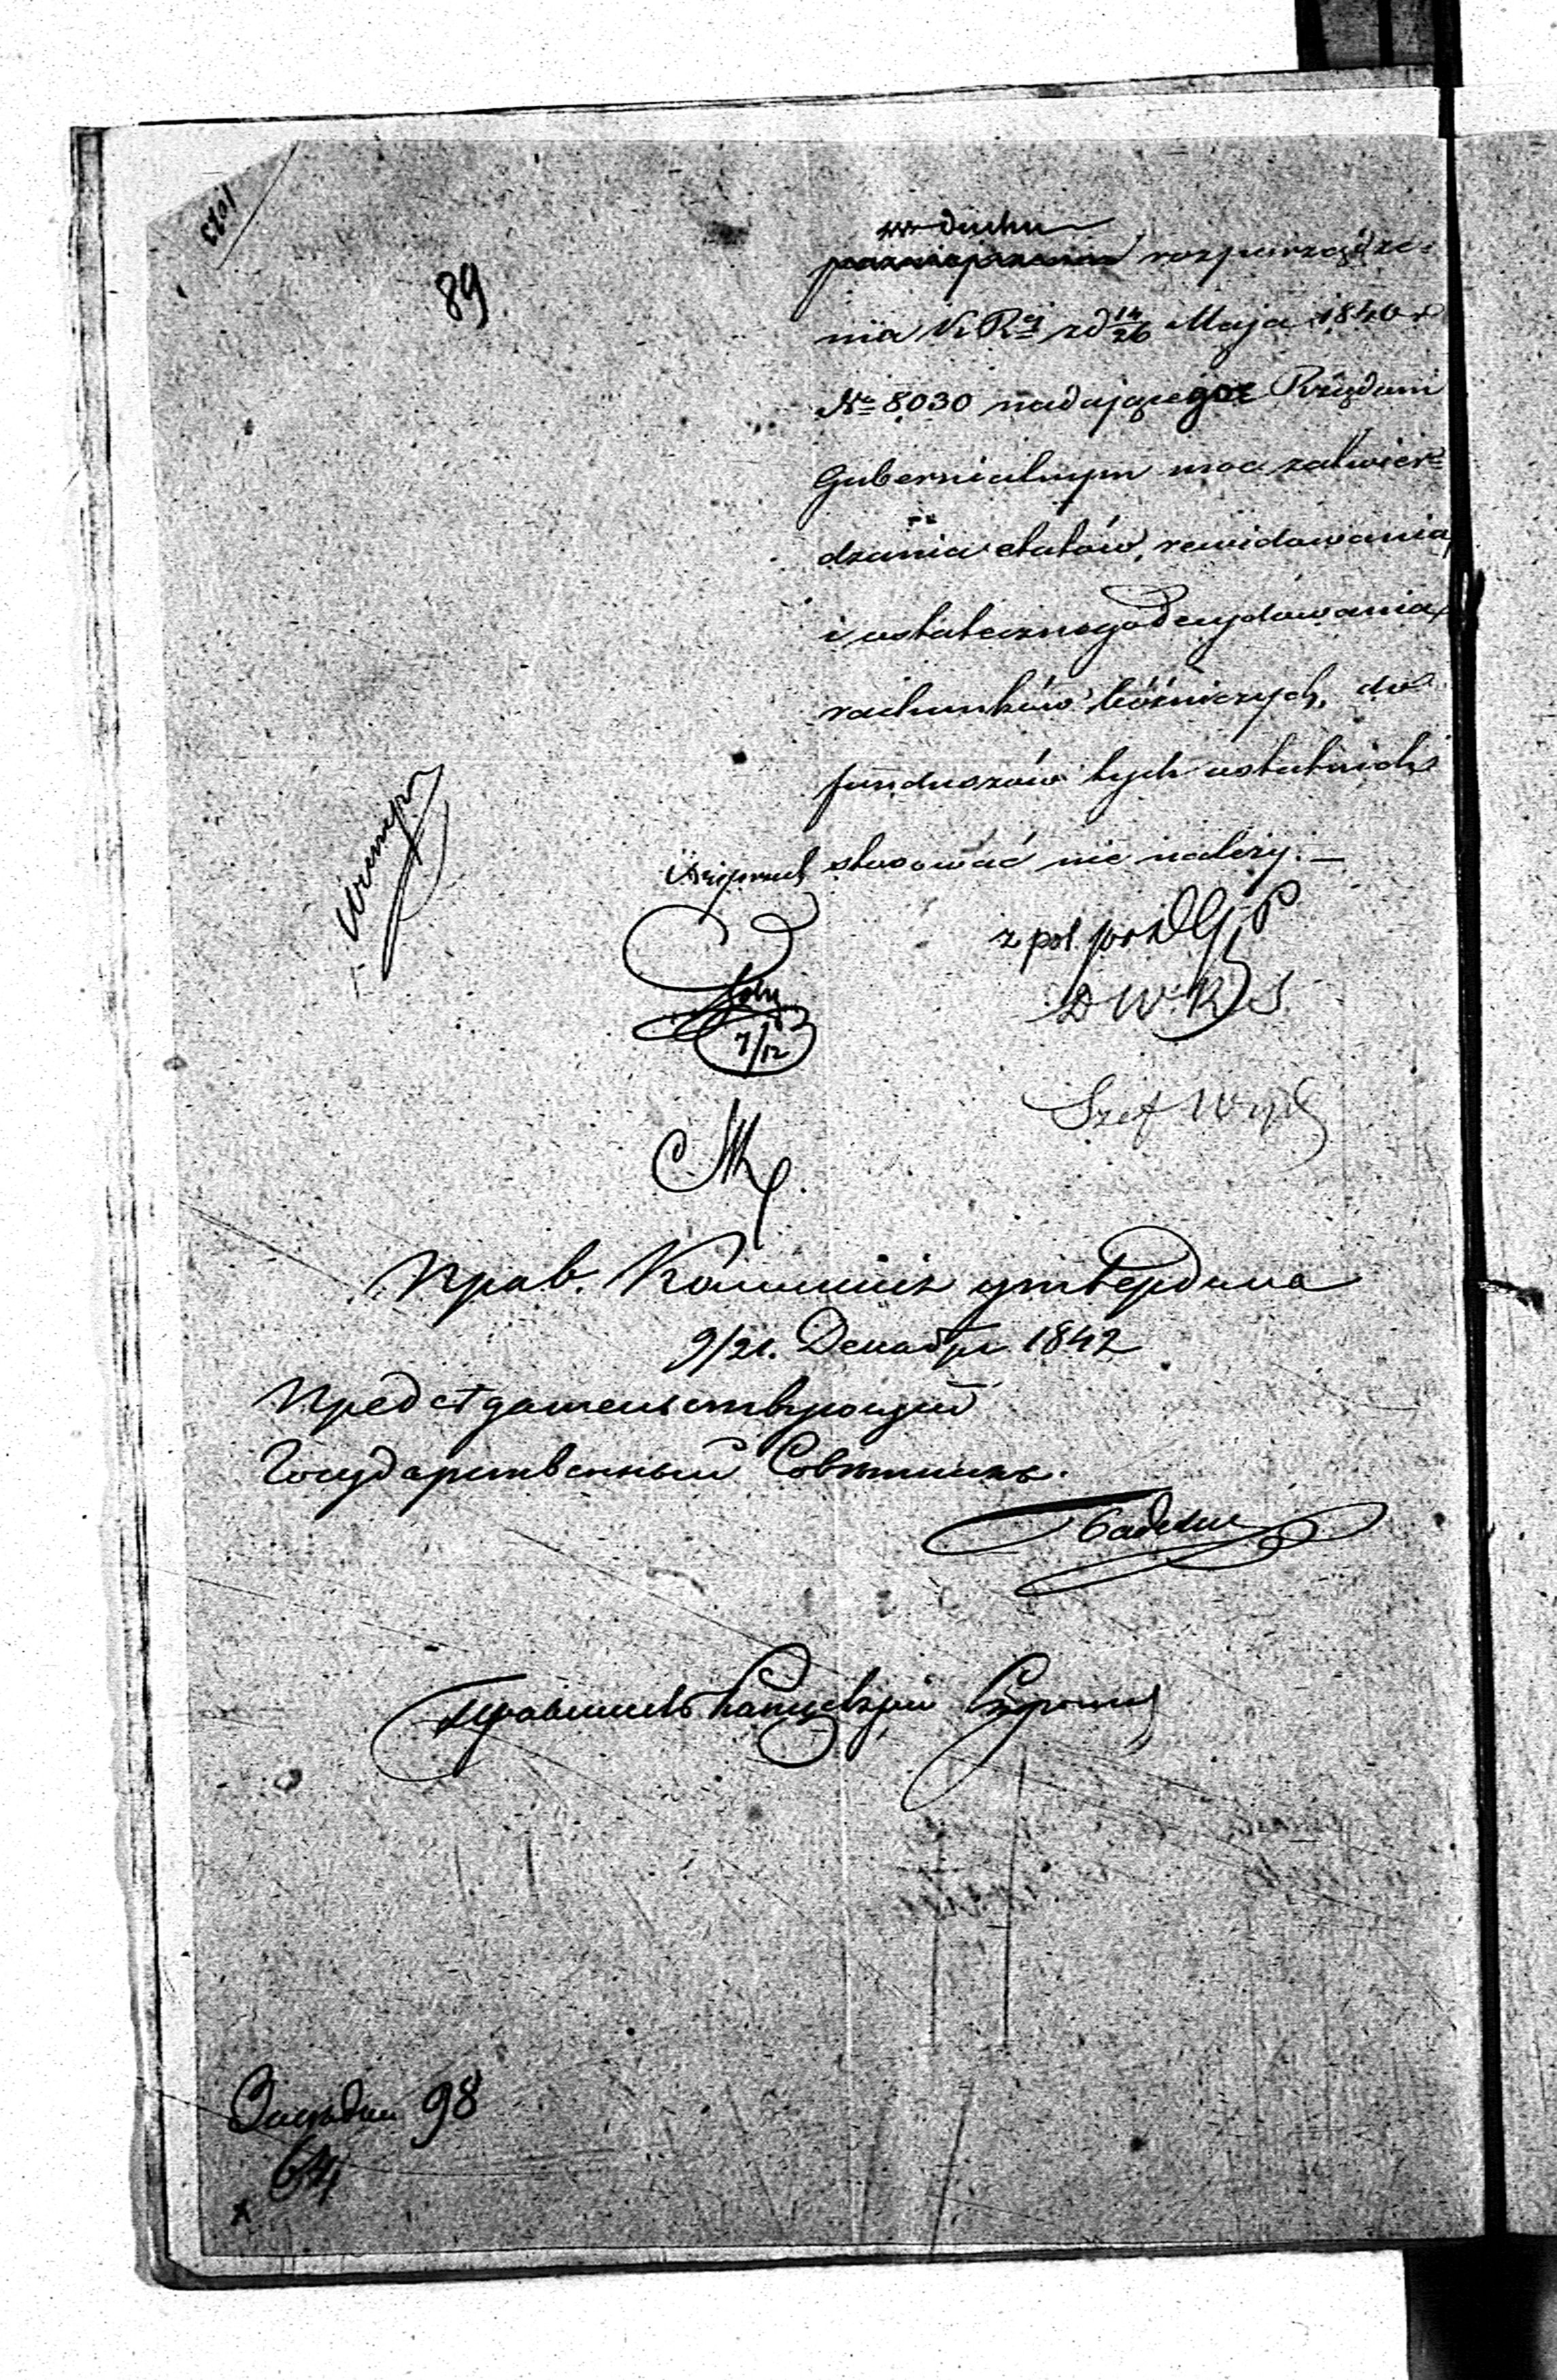 1023
89
w duchu
rozporządze=
nia K. R.ej z d 14/26 Maja 1840 r
No 8030 nadającego Rządom
Gubernialnym moc zatwier=
dzania etatów, rewidowania
i ostatecznego decydowania
rachunków bóżniczych, do
funduszów tych ostatnich
stosować nie należy. —
z pol.
D W. K S.
7/12
Szef Wydz
Прав. Коммисія утвердила
9/21. Декабря 1842
Предсѣдательствующій
Государственный Совѣтникъ.
Правитель Канцеляріи
98
64
x